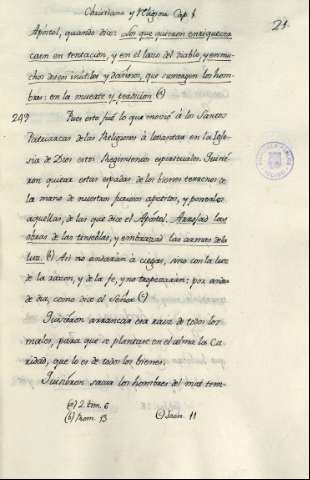 Christiano y Religioso Cap. 1
21
Apóstol, quando dice: Los que quieren enriquecerse
caen en tentación, y en el lazo del diablo, y en mu-
chos deseos inútiles y dañosos, que sumergen los hom-
bres en la muerte y perdición (a)
249
Pues esto fué lo que movió à los Santos
Patriarcas de las Religiones à levantar en la Igle-
sia de Dios estos Regimientos espirituales. Quisié-
ron quitar estas espadas de los bienes terrenos de
la mano de nuestros apetitos, y ponerles
aquellas, de las que dice el Apóstol. Arrojad las
obras de las tinieblas, y embrazad las armas de la
luz. (b) Asi no andarán à ciegas, sino con la luz
de la razon, y de la fe, y no tropezarán: por andar
de dia, como dice el Señor (c)
Quisiéron arrancar esa raiz de todos los
males, para que se plantase en el alma la Ca-
ridad, que lo es de todos los bienes.
Quisiéron sacar los hombres del mar tem-
(a) 2. tim. 6
(b) Rom. 13
(c) Joan. 11